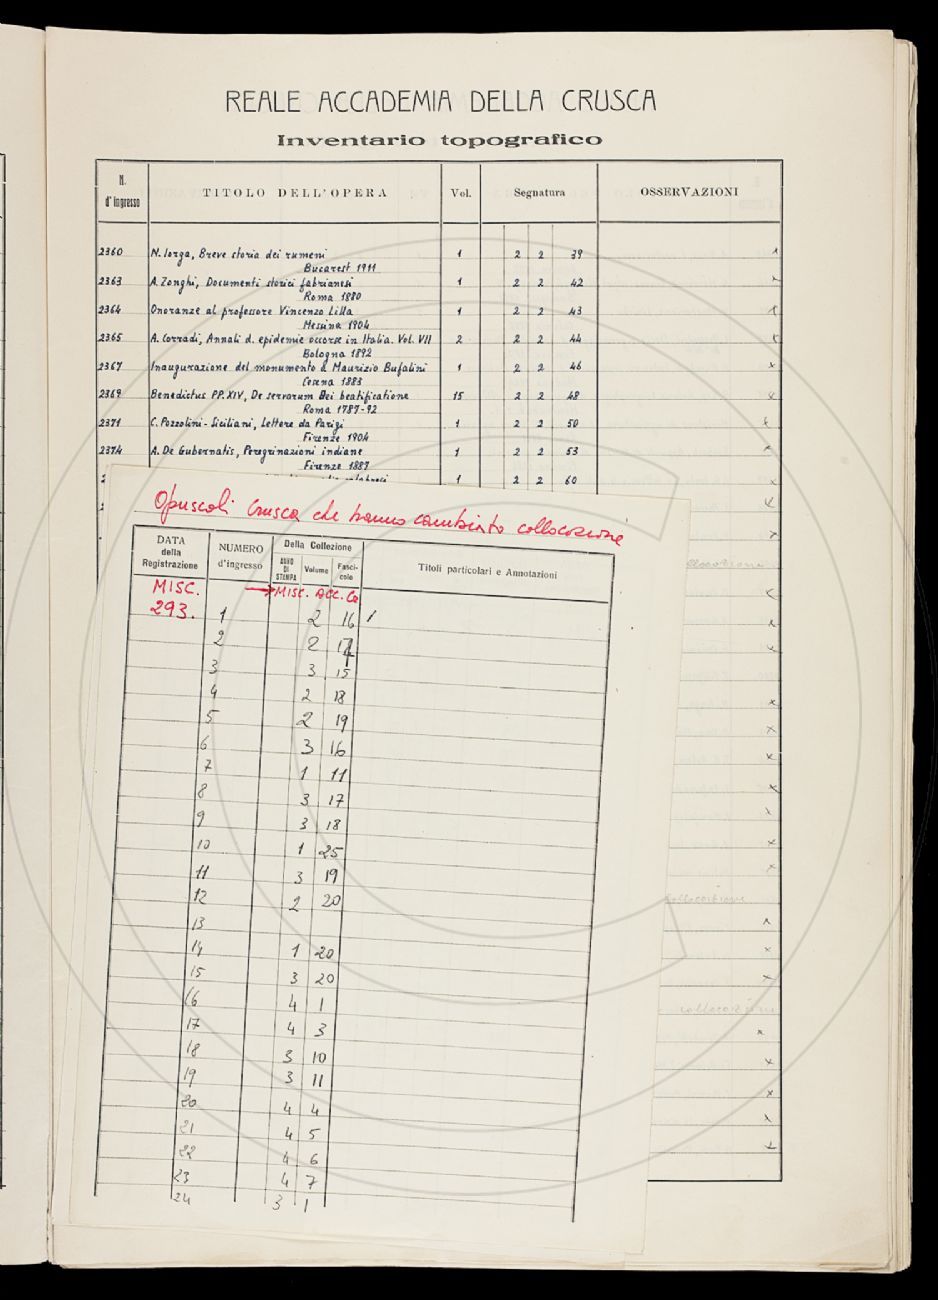 REALE ACCADEMIA DELLA CRUSCA
Inventario topografico
N. d'ingresso TITOLO DELL'OPERA Vol. Segnatura OSSERVAZIONI
2360 N. Iorga, Breve storia dei rumeni 1 2 2 39 x
Bucarest 1911
2363 A. Zonghi, Documenti storici fabrianesi 1 2 2 42 x
Roma 1880
2364 Onoranze al professore Vincenzo Lilla 1 2 2 43 x
Messina 1904
2365 A. Corradi, Annali d. epidemie occorse in Italia. Vol. VII 2 2 2 44 x
Bologna 1892
2367 Inaugurazione del monumento a Maurizio Bufalini 1 2 2 46 x
Cesena 1883
2369 Benedictus PP. XIV, De servorum Dei beatificatione 15 2 2 48 x
Roma 1787-92
2371 C. Pozzolini-Siciliani, Lettere da Parigi 1 2 2 50 x
Firenze 1904
2374 A. De Gubernatis, Peregrinazioni indiane 1 2 2 53 x
Firenze 1887
1 2 2 60
Opuscoli Crusca che hanno cambiato collocazione
DATA della Registrazione NUMERO d'ingresso Della Collezione Titoli particolari e Annotazioni
ANNO DI STAMPA Volume Fasci-colo
MISC. → MISC. ACC. Co
293. 1 2 16
2 2 17
3 3 15
4 2 18
5 2 19
6 3 16
7 1 11
8 3 17
9 3 18
10 1 25
11 3 19
12 2 20
13
14 1 20
15 3 20
16 4 1
17 4 3
18 3 10
19 3 11
20 4 4
21 4 5
22 4 6
23 4 7
24 3 1
collocazione
collocazione